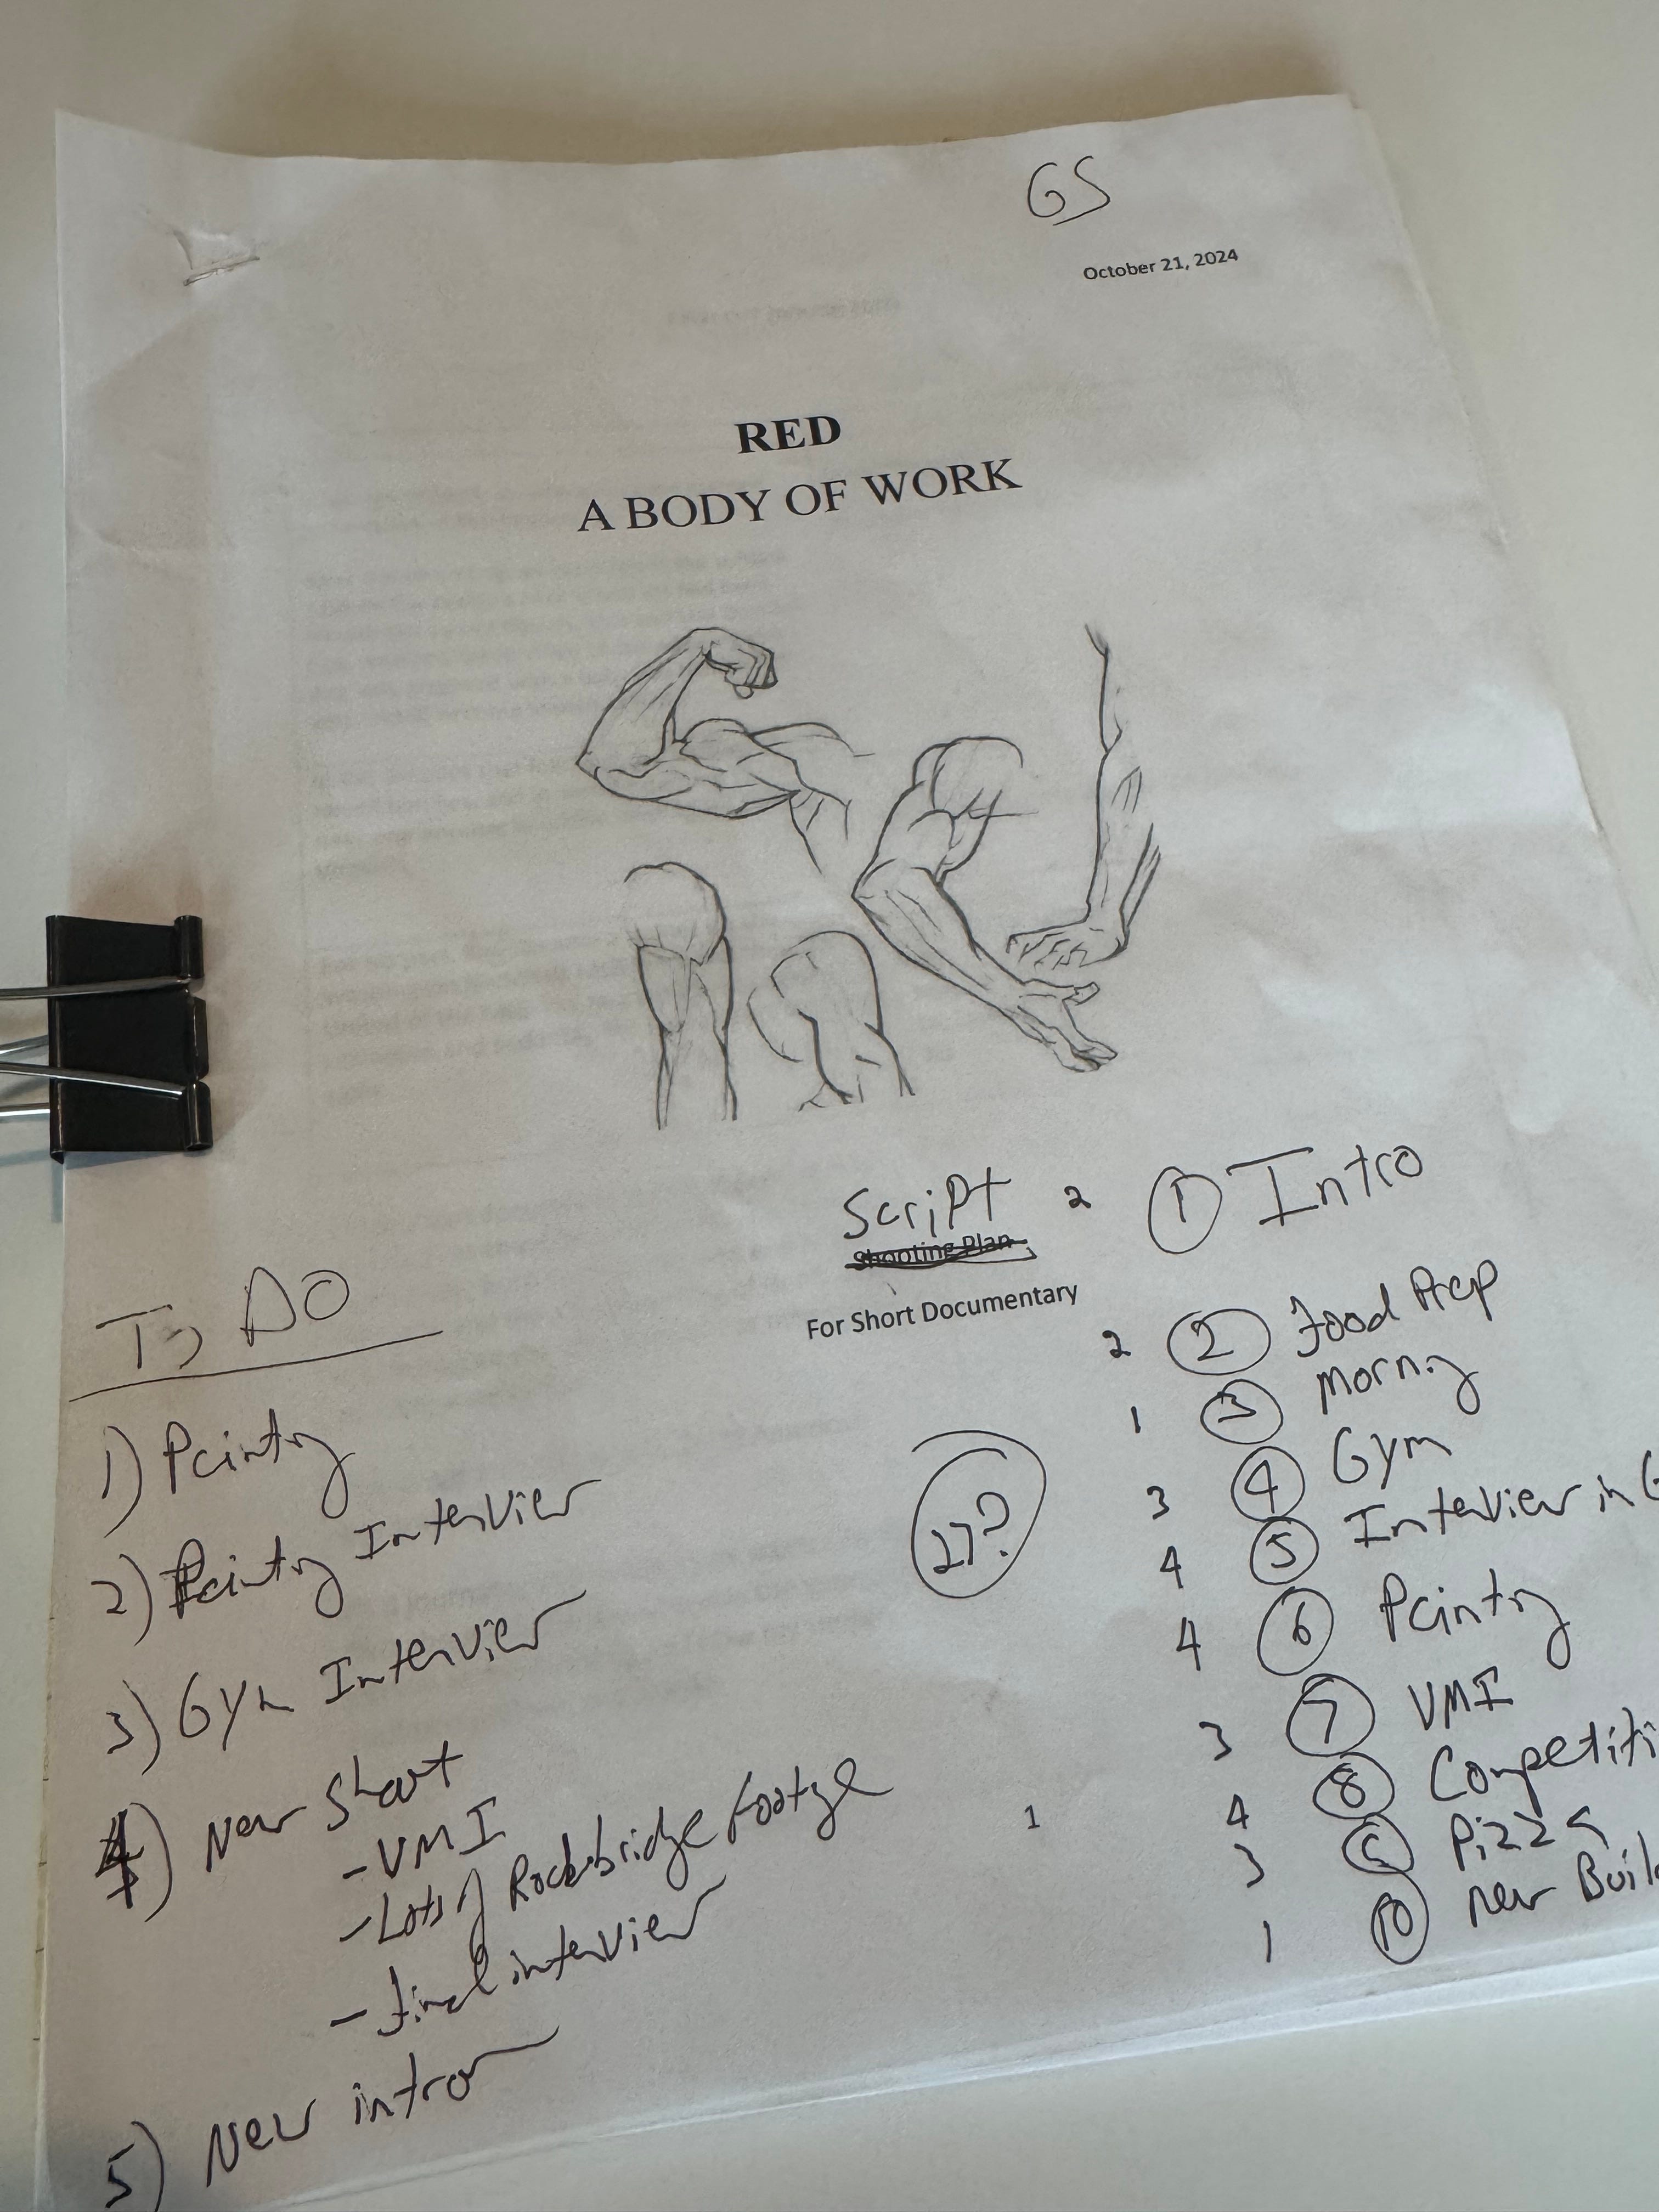 GS
October 21, 2024
RED
A BODY OF WORK
Script
Shooting Plan
For Short Documentary
To DO
1) Painting
2) Painting Interview
3) Gym Interview
4) New Shoot
- VMI
- Lots of Rockbridge footage
- final interview
5) New intro
27?
2 1 Intro
2 2 Food Prep
1 3 Morning
3 4 Gym
4 5 Interview in G
4 6 Painting
3 7 VMI
1 4 8 Competiti
3 9 Pizza
1 10 New Buil